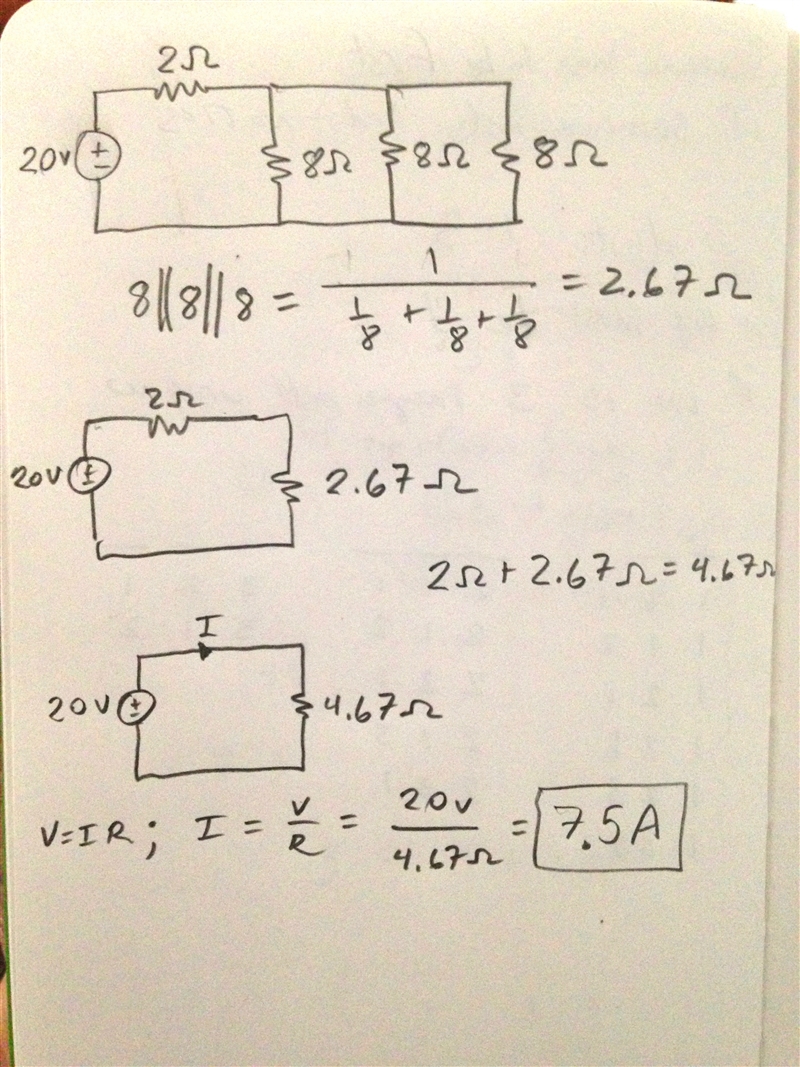 2Ω
20v 8Ω 8Ω 8Ω
8||8||8 = 1 / (1/8 + 1/8 + 1/8) = 2.67Ω
2Ω
20v 2.67Ω
2Ω + 2.67Ω = 4.67Ω
I
20v 4.67Ω
V=IR; I = V/R = 20v / 4.67Ω = 7.5A